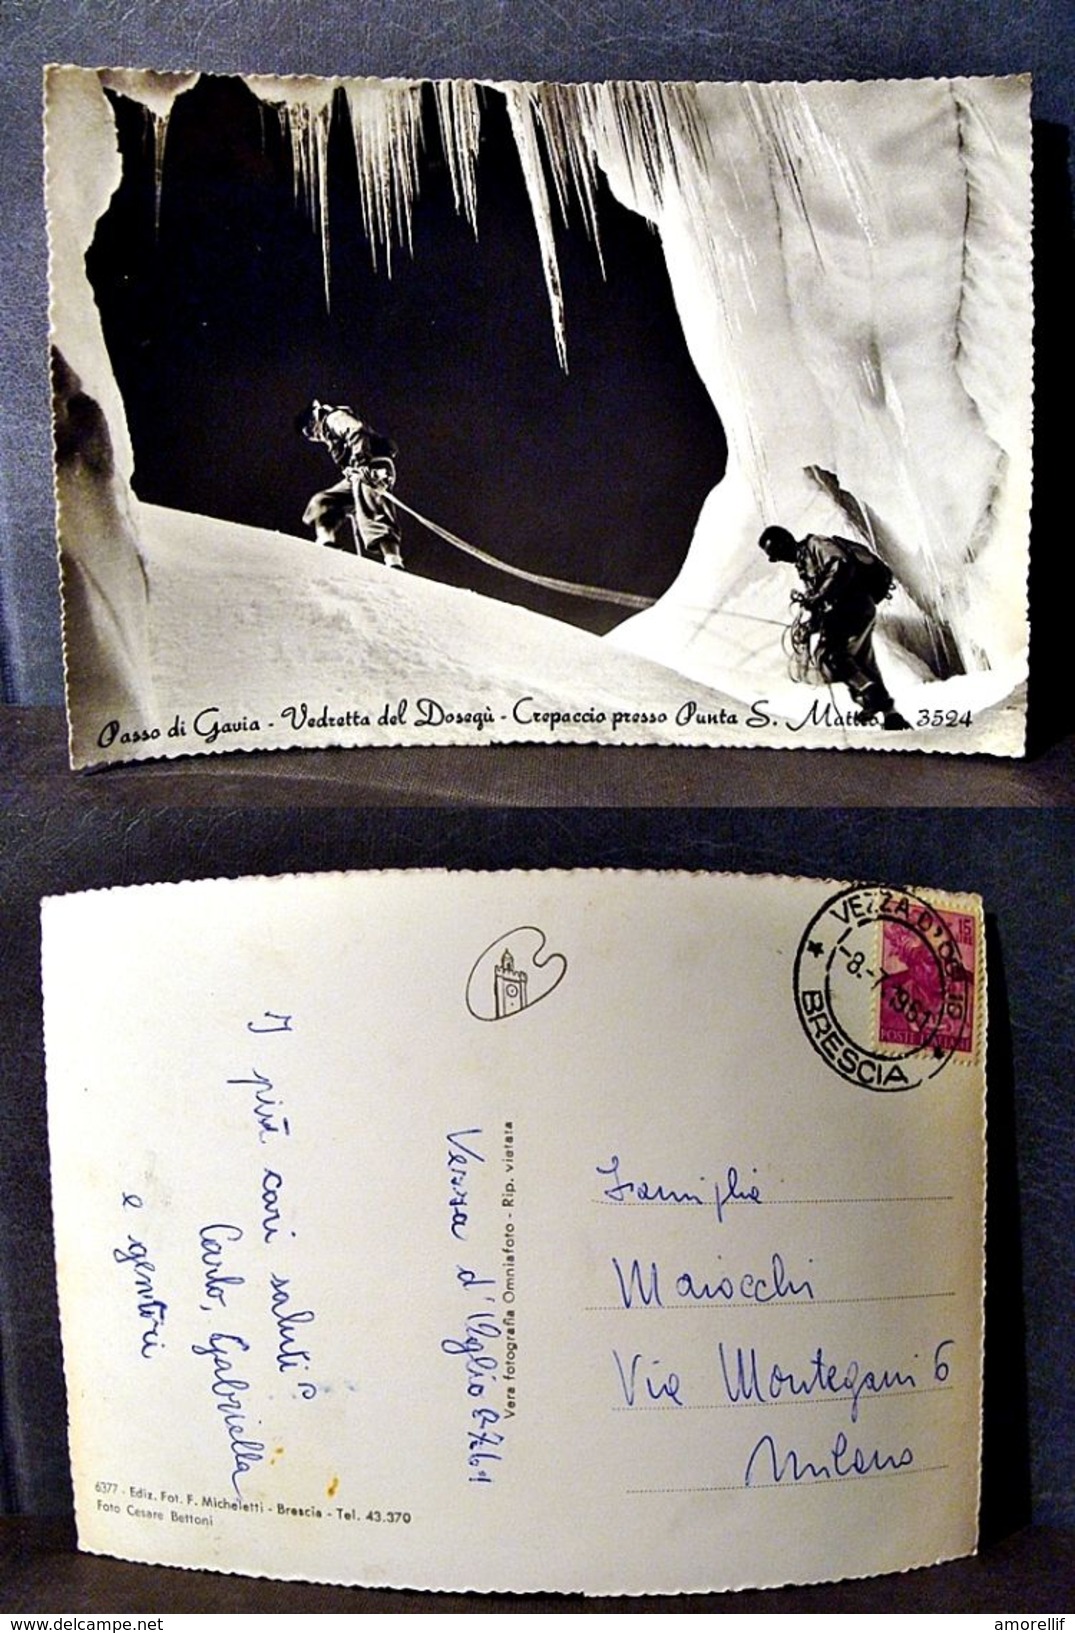 Passo di Gavia - Vedretta del Dosegù - Crepaccio presso Punta S. Matteo 3524
VEZZA D'OGLIO
-8.-7.1961
BRESCIA
15
LIRE
POSTE ITALIANE
I più cari saluti
Carlo, Gabriella
e genitori
Vezza d'Oglio 8-7-61
Vera fotografia Omniafoto - Rip. vietata
Famiglia
Maiocchi
Via Montegani 6
Milano
6377 - Ediz. Fot. F. Micheletti - Brescia - Tel. 43.370
Foto Cesare Bettoni
delcampe.net
amorellif